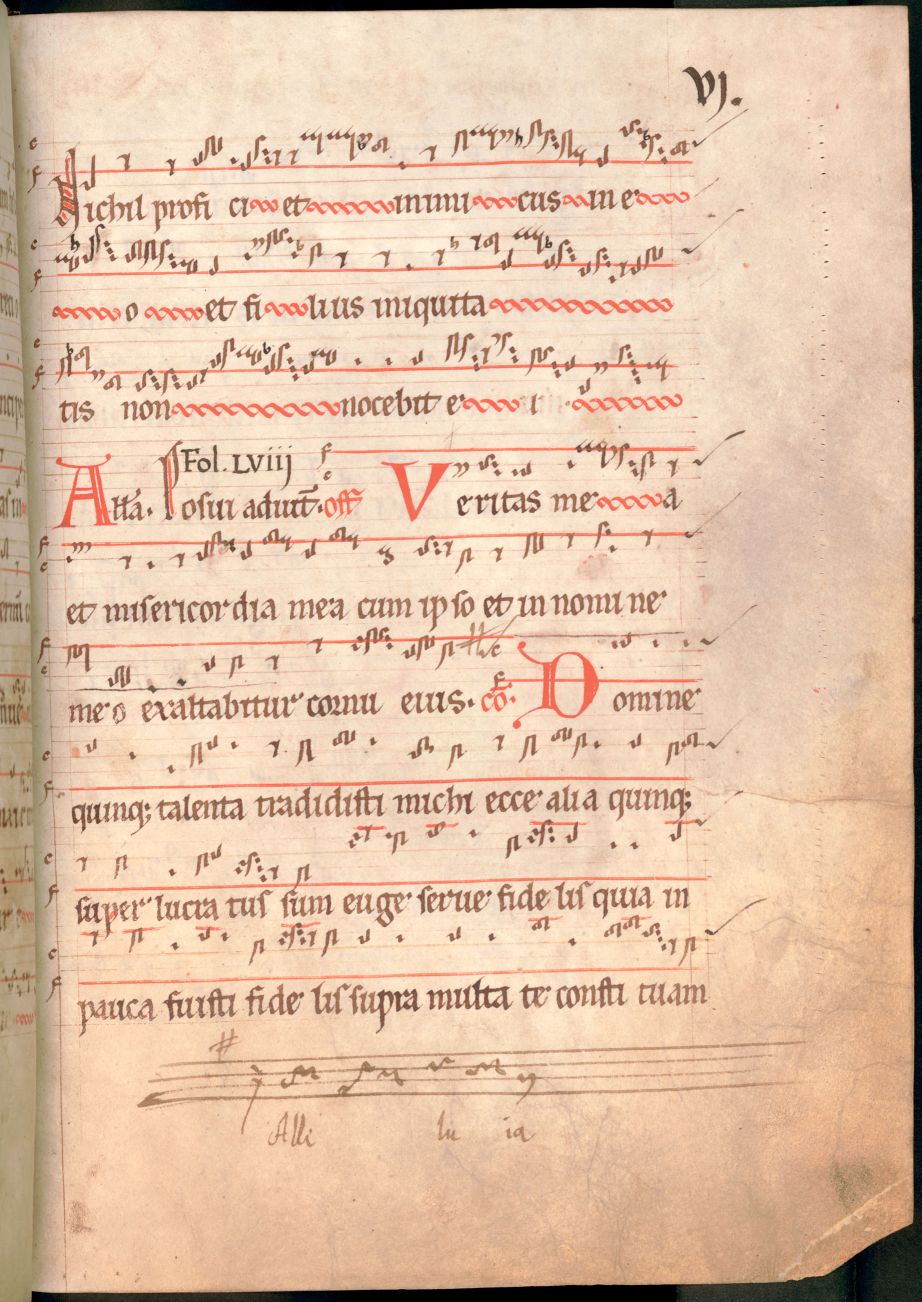 VJ.
Nichil profi ci et inimi cus in e
o et fi lius iniquita
tis non nocebit e i
Fol. LVIIJ
All'a. Posui adiut. off Veritas me a
et misericordia mea cum ipso et in nomine
meo exaltabitur cornu eius. cō. Domine
quinq; talenta tradidisti michi ecce alia quinq;
super lucra tus sum euge serue fide lis quia in
pauca fuisti fide lis supra multa te consti tuam
Alle lu ia